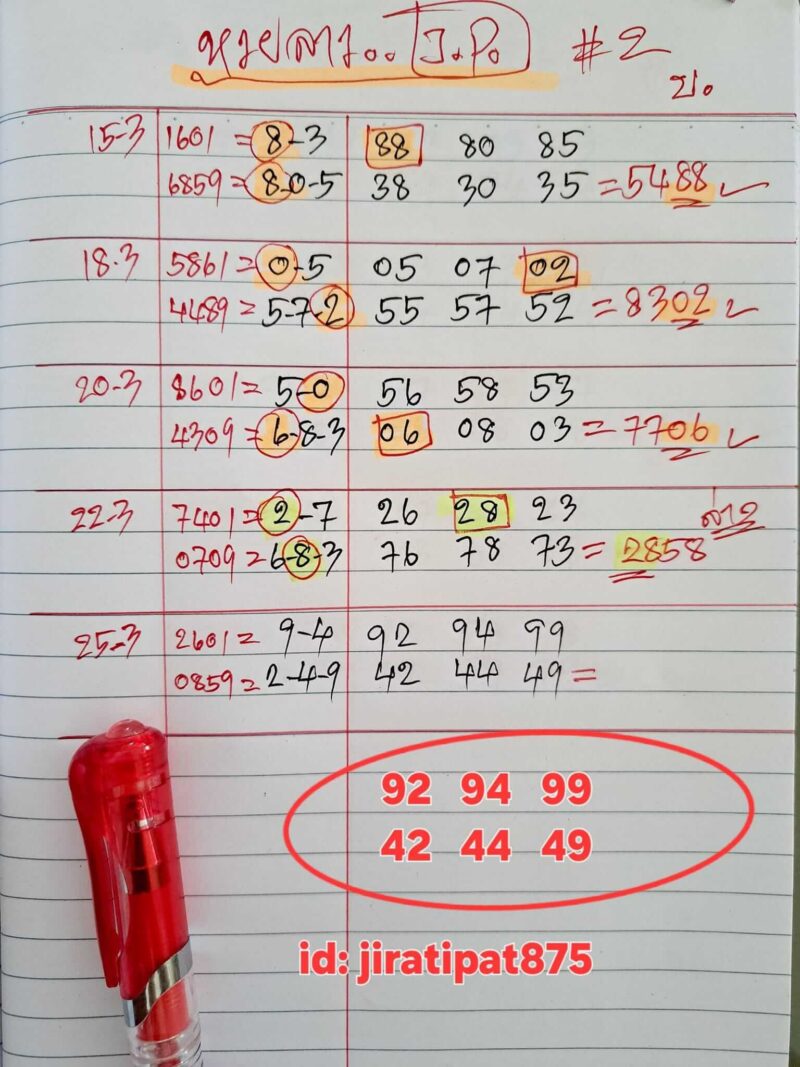 หวยลาว.. J.P. #2
บ.
15-3 1601 = 8-3 88 80 85
6859 = 8-0-5 38 30 35 = 5488 ✓
18.3 5861 = 0-5 05 07 02
4489 = 5-7-2 55 57 52 = 8302 ✓
20-3 8601 = 5-0 56 58 53
4309 = 6-8-3 06 08 03 = 7706 ✓
22-3 7401 = 2-7 26 28 23 ล่าง
0709 = 6-8-3 76 78 73 = 2858
25-3 2601 = 9-4 92 94 99
0859 = 2-4-9 42 44 49 =
92 94 99
42 44 49
id: jiratipat875